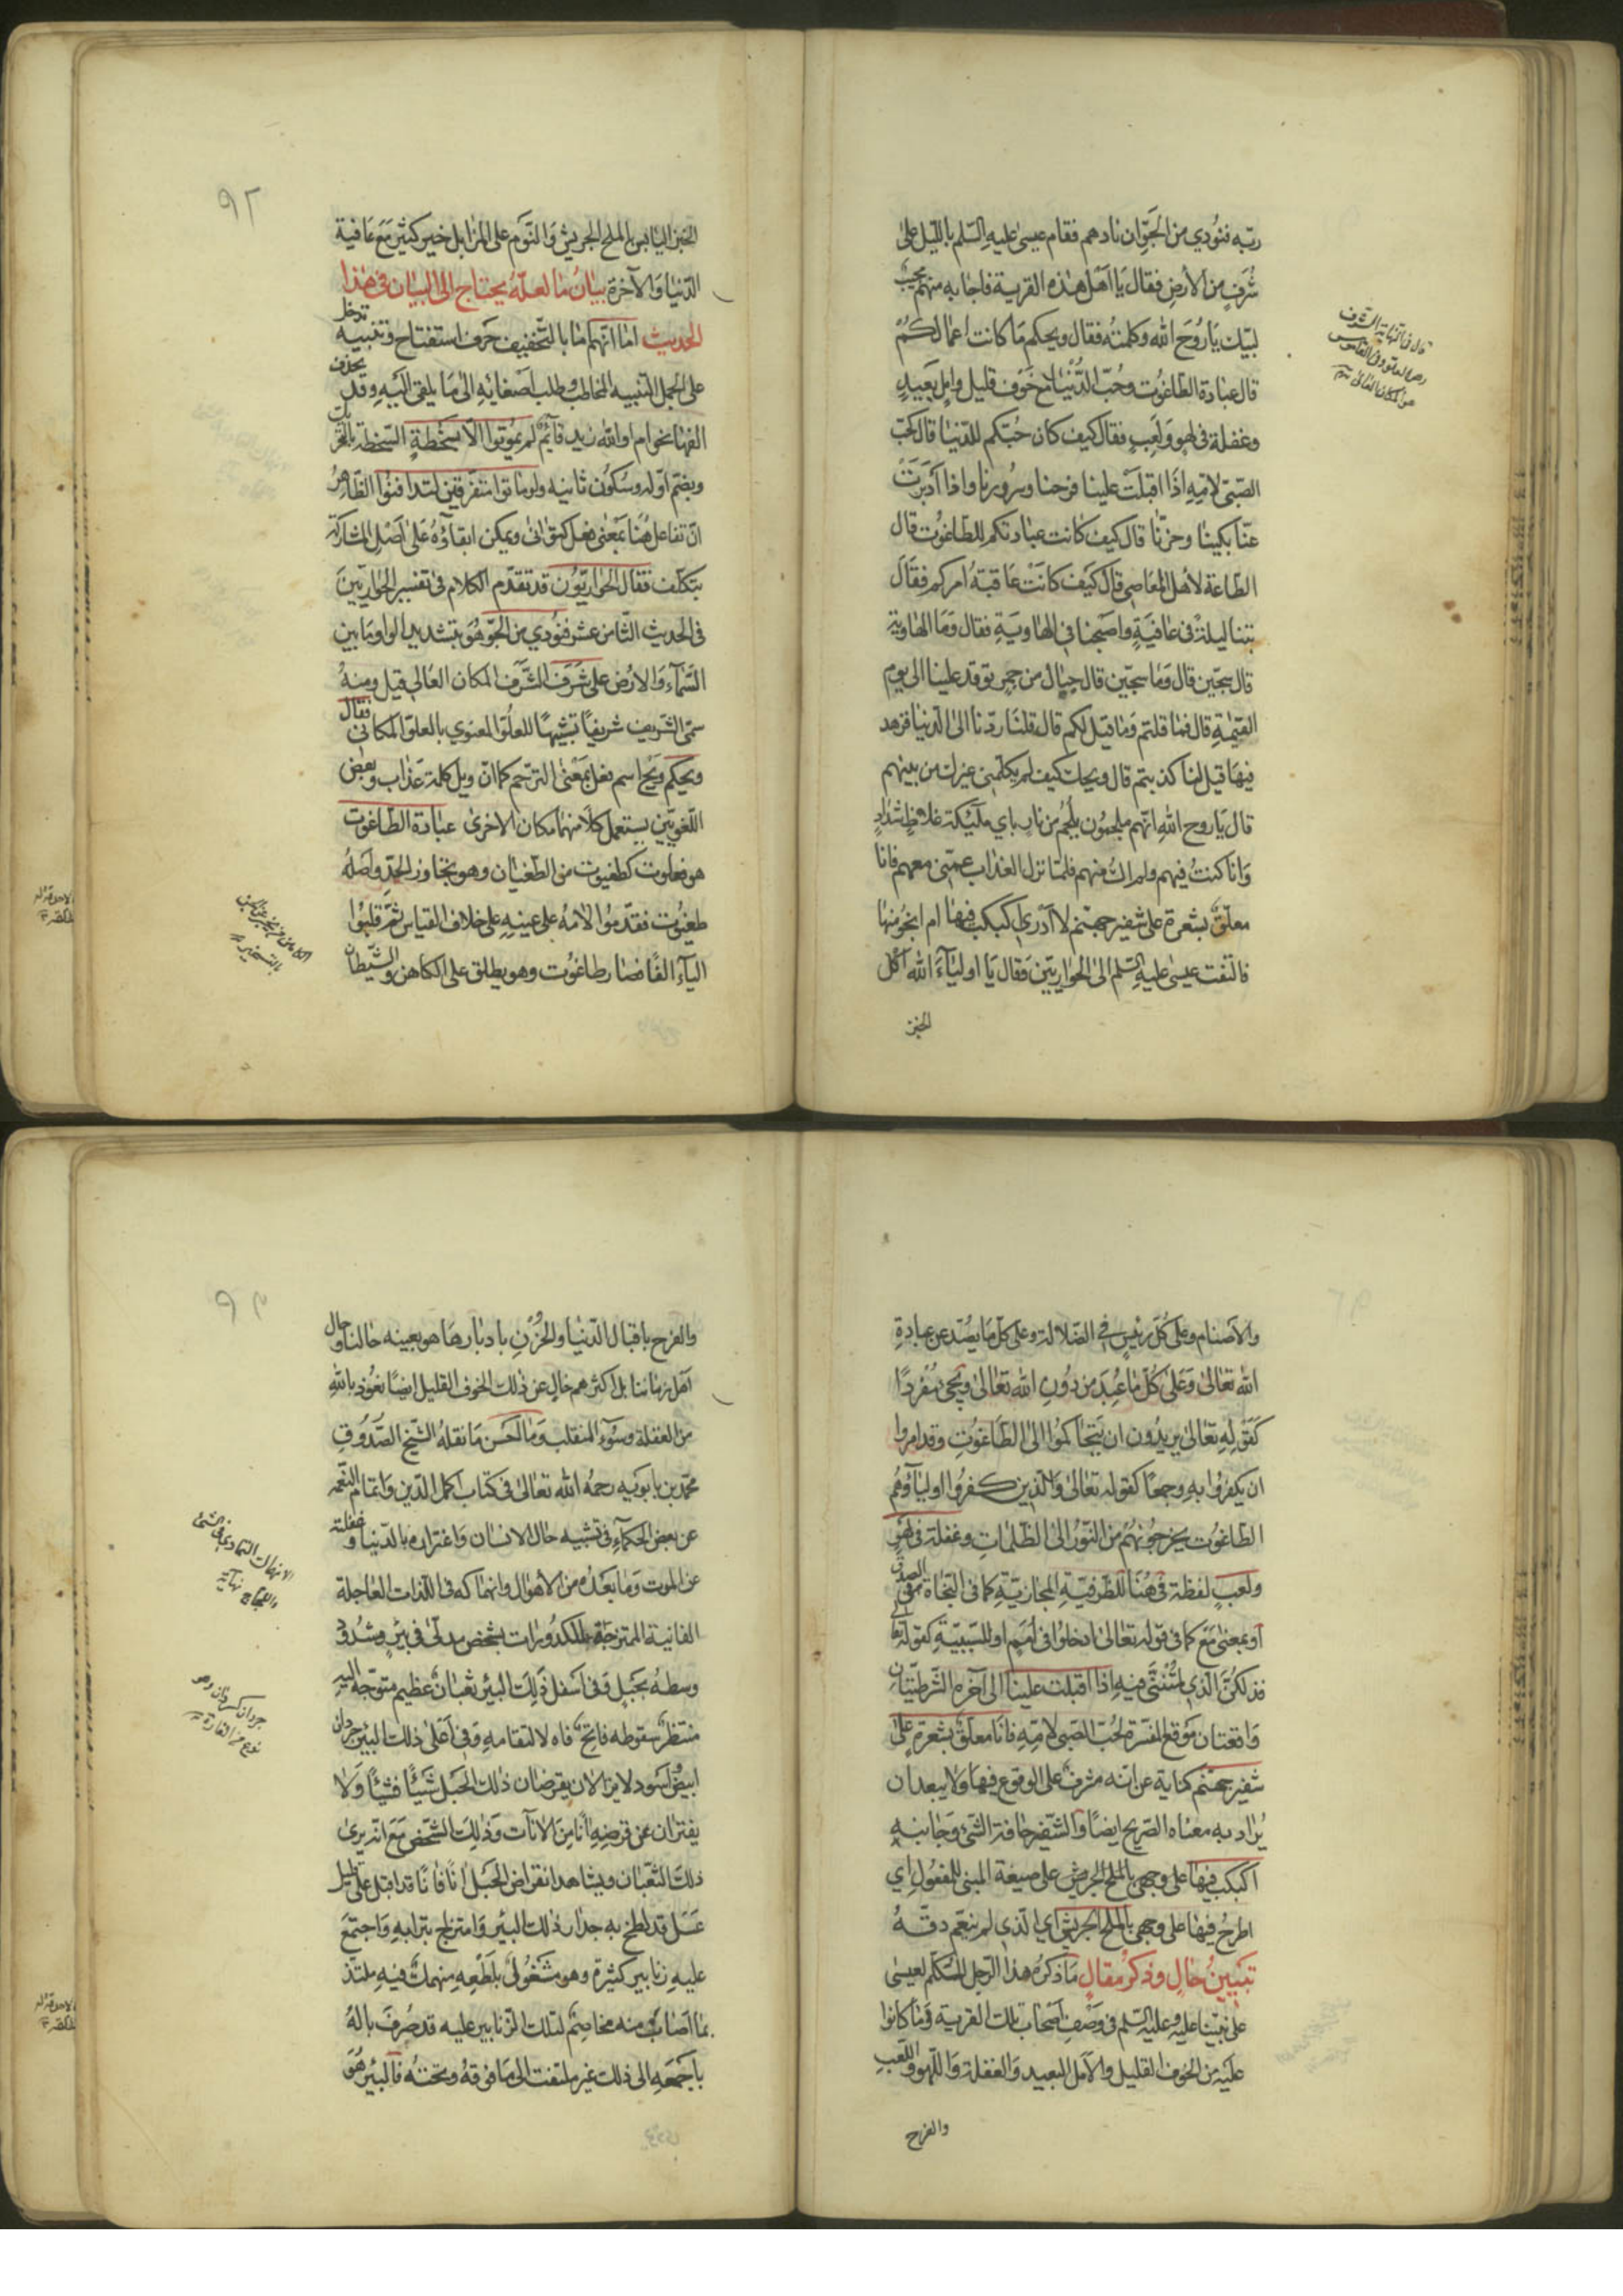 ربّه فنودي من الجوّ ان نادهم فقام عيسى عليه السّلم بالليل على
شرف من الارض فقال يا اهل هذه القرية فاجابه منهم مجيب
لبّيك يا روح الله وكلمته فقال ويحكم ما كانت اعمالكم
قال عبادة الطاغوت وحبّ الدّنيا مع خوف قليل وامل بعيد
وغفلة في لهو ولعب فقال كيف كان حبّكم للدّنيا قال كحبّ
الصّبيّ لامّه اذا اقبلت علينا فرحنا وسرورنا واذا ادبرت
عنّا بكينا وحزنّا قال كيف كانت عبادتكم للطّاغوت قال
الطّاعة لاهل المعاصي قال كيف كانت عاقبة امركم فقال
بتنا ليلة في عافية واصبحنا في الهاوية فقال وما الهاوية
قال سجّين قال وما سجّين قال جبال من جمر توقد علينا الى يوم
القيمة قال فما قلتم وما قيل لكم قال قلنا ردّنا الى الدّنيا فنزهد
فيها قيل لنا كذبتم قال ويحك كيف لم يكلّمني غيرك من بينهم
قال يا روح الله انّهم ملجمون بلجم من نار بايدي ملئكة غلاظ شداد
وانا كنت فيهم ولم اك منهم فلمّا نزل العذاب عمّني معهم فانا
معلّق بشعرة على شفير جهنّم لا ادري اكبكب فيها ام انجو منها
فالتفت عيسى عليه السّلم الى الحواريّين فقال يا اولياء الله اكل
الخبز
قال في النهاية الشرف
العلو وفي القاموس
هو المكان العالي
٩٢
الخبز اليابس بالملح الجريش والنّوم على المزابل خير كثير مع عافية
الدّنيا والآخرة بيان ما لعلّه يحتاج الى البيان في هذا
الحديث اما انّهم اما بالتّخفيف حرف استفتاح وتنبيه تدخل
على الجمل لتنبيه المخاطب وطلب اصغائه الى ما يلقى اليه وقد يحذف
الفها نحو ام والله زيد قائم لم يموتوا الّا بسخطة السّخطة بالتّحريك
وبضمّ اوّله وسكون ثانيه ولو ماتوا متفرّقين لتدافنوا الظّاهر
انّ تفاعل هنا بمعنى فعل كتوانى ويمكن ابقاؤه على اصل المشاركة
بتكلّف فقال الحواريّون قد تقدّم الكلام في تفسير الحواريّين
في الحديث الثّامن عشر فنودي من الجوّ هو بتشديد الواو ما بين
السّماء والارض على شرف الشّرف المكان العالي قيل ومنه
سمّي الشّريف شريفًا تشبيهًا للعلوّ المعنوي بالعلوّ المكاني فقال
ويحكم ويح اسم فعل بمعنى التّرحّم كما انّ ويل كلمة عذاب وبعض
اللّغويّين يستعمل كلّا منهما مكان الاخرى عبادة الطّاغوت
هو فعلوت كطغيوت من الطّغيان وهو تجاوز الحدّ واصله
طغيوت فقدّموا لامه على عينه على خلاف القياس ثمّ قلبوا
الياء الفًا فصار طاغوت وهو يطلق على الكاهن والشّيطان
الكاهن من يخبر عن الجن
بالتسخير
والاصنام وعلى كلّ رئيس في الضّلالة وعلى كلّ ما يصدّ عن عبادة
الله تعالى وعلى كلّ ما عبد من دون الله تعالى ويجي مفردًا
كقوله تعالى يريدون ان يتحاكموا الى الطّاغوت وقد امروا
ان يكفروا به وجمعًا كقوله تعالى والّذين كفروا اولياؤهم
الطّاغوت يخرجونهم من النّور الى الظّلمات وغفلة في لهو
ولعب لفظة في هنا للظّرفيّة المجازيّة كما في النّجاة في الصّدق
او بمعنى مع كما في قوله تعالى ادخلوا في امم او للسّببيّة كقوله تعالى
فذلكنّ الّذي لمتنّني فيه اذا اقبلت علينا الى آخره الشّرطيّتان
واقعتان موقع المفسّرة لحبّ الصّبي لامّه فانا معلّق بشعرة على
شفير جهنّم كناية عن انّه مشرف على الوقوع فيها ولا يبعد ان
يراد به معناه الصّريح ايضًا والشّفير حافة الشّيء وجانبه
اكبكب فيها على وجهي بالملح الجريش على صيغة المبني للمفعول اي
اطرح فيها على وجهي بالملح الجريش اي الّذي لم ينعّم دقّه
تبيين حال وذكر مقال ما ذكره هذا الرّجل المتكلّم لعيسى
على نبيّنا عليه وعليه السّلم في وصف اصحاب تلك القرية وما كانوا
عليه من الخوف القليل والامل البعيد والغفلة واللّهو واللّعب
والفرح
٩٣
والفرح باقبال الدّنيا والحزن بادبارها هو بعينه حالنا وحال
اهل زماننا بل اكثرهم خال عن ذلك الخوف القليل ايضًا نعوذ بالله
من الغفلة وسوء المنقلب وما احسن ما نقله الشّيخ الصّدوق
محمّد بن بابويه رحمه الله تعالى في كتاب اكمال الدّين واتمام النّعمة
عن بعض الحكماء في تشبيه حال الانسان واغتراره بالدّنيا وغفلته
عن الموت وما بعده من الاهوال وانهماكه في اللّذات العاجلة
الفانية الممتزجة بالكدورات بشخص مدلّى في بئر مشدود
وسطه بحبل وفي اسفل ذلك البئر ثعبان عظيم متوجّه اليه
منتظر سقوطه فاتح فاه لالتقامه وفي اعلى ذلك البئر جرذان
ابيض واسود لا يزالان يقرضان ذلك الحبل شيئًا فشيئًا ولا
يفتران عن قرضه آنًا من الآنات وذلك الشّخص مع انّه يرى
ذلك الثّعبان ويشاهد انقراض الحبل آنًا فآنًا قد اقبل على قليل
عسل قد لطخ به جدار ذلك البئر وامتزج بترابه واجتمع
عليه زنابير كثيرة وهو مشغول بلطعه منهمك فيه ملتذّ
بما اصاب منه مخاصم لتلك الزّنابير عليه قد صرف باله
باجمعه الى ذلك غير ملتفت الى ما فوقه وتحته فالبئر هو
الانهماك التمادي في الشيء
واللجاج نهاية
نوع من الفارة